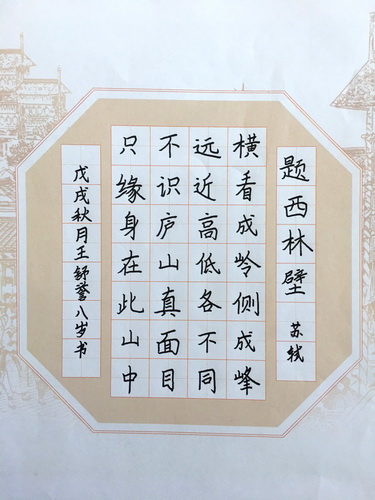 题西林壁
苏轼
横看成岭侧成峰
远近高低各不同
不识庐山真面目
只缘身在此山中
戊戌秋月王舒誉八岁书